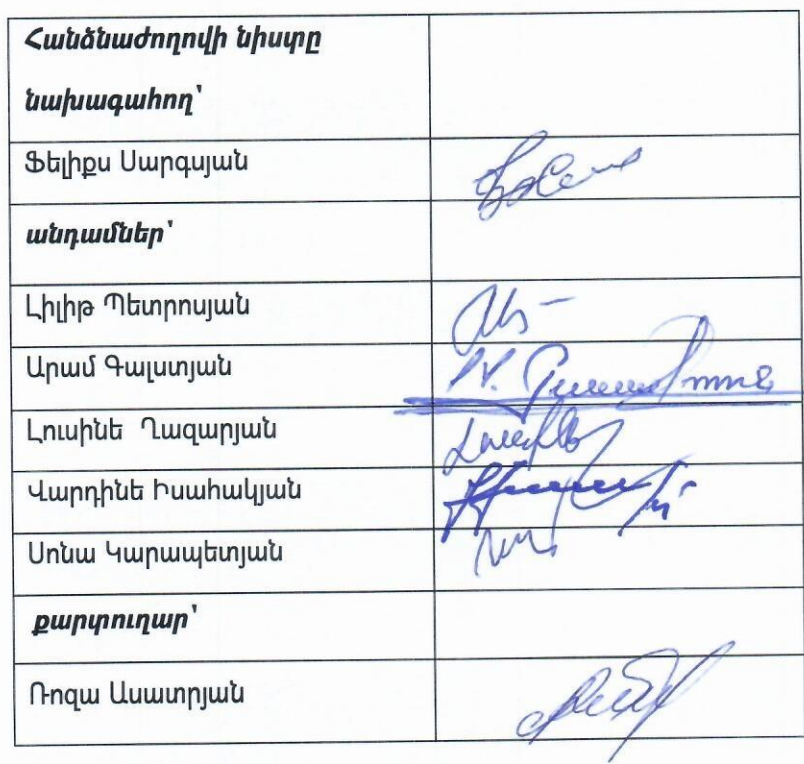 Հանձնաժողովի նիստը
նախագահող՝
Ֆելիքս Սարգսյան
անդամներ՝
Լիլիթ Պետրոսյան
Արամ Գալստյան
Լուսինե Ղազարյան
Վարդինե Իսահակյան
Սոնա Կարապետյան
քարտուղար՝
Ռոզա Ասատրյան